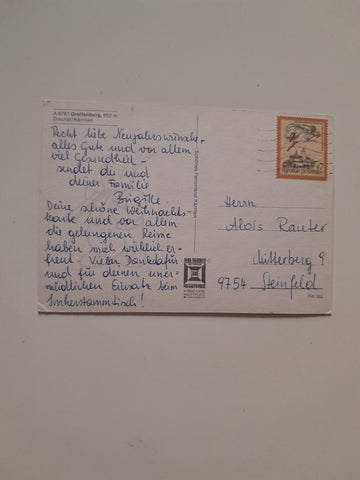 A-9761 Greifenburg, 650 m
Drautal/Kärnten
Recht liebe Neujahrswünsche,
alles Gute und vor allem
viel Gesundheit -
sendet dir und
deiner Familie
Brigitte
Deine schöne Weihnachts-
karte und vor allem
die gelungenen Reime
haben mich wirklich er-
freut - Vielen Dank dafür
und für deinen uner-
müdlichen Einsatz beim
Imkerstammtisch!
Herrn
Alois Rauter
Mitterberg 9
9754 Steinfeld